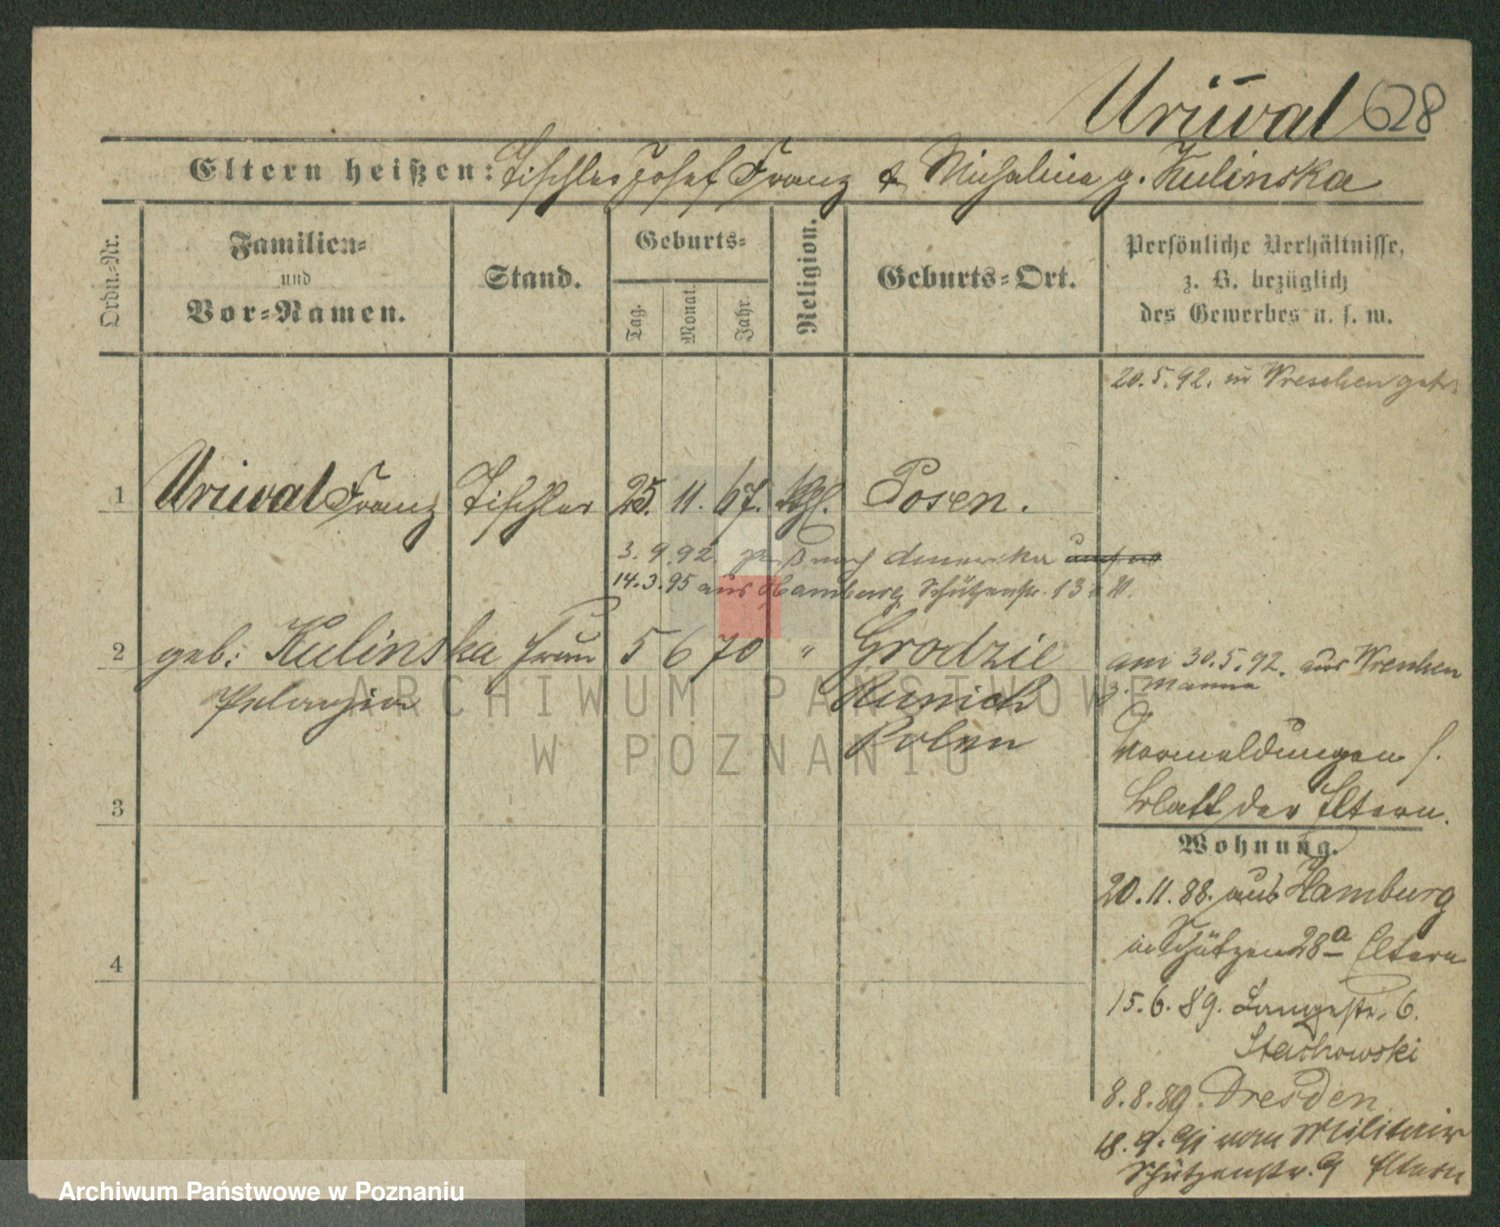 Uruval 628
Eltern heißen: Tischler Josef Franz & Michalina g. Kulinska
Ordn.-Nr.
Familien-
und
Vor-Namen.
Stand.
Geburts-
Tag.
Monat.
Jahr.
Religion.
Geburts-Ort.
Persönliche Verhältnisse,
z. B. bezüglich
des Gewerbes u. s. w.
20.5.92. in Wreschen
1 Uruval Franz Tischler 25. 11. 67. kth. Posen.
3.9.92. nach Amerika
14.3.95 aus Hamburg Schützenstr. 13
2 geb: Kulinska Frau 5 6 70 " Grodzie
Pelagia Polen
am 30.5.92. aus Wreschen
Vormeldungen s.
Blatt der Eltern.
3
Wohnung.
20.11.88. aus Hamburg
in Schützen 28a Eltern
4
15.6.89. Langestr. 6.
Stachowski
8.8.89. Dresden
18.9.91 vom Militair
Schützenstr. 9 Eltern
ARCHIWUM PAŃSTWOWE
W POZNANIU
Archiwum Państwowe w Poznaniu